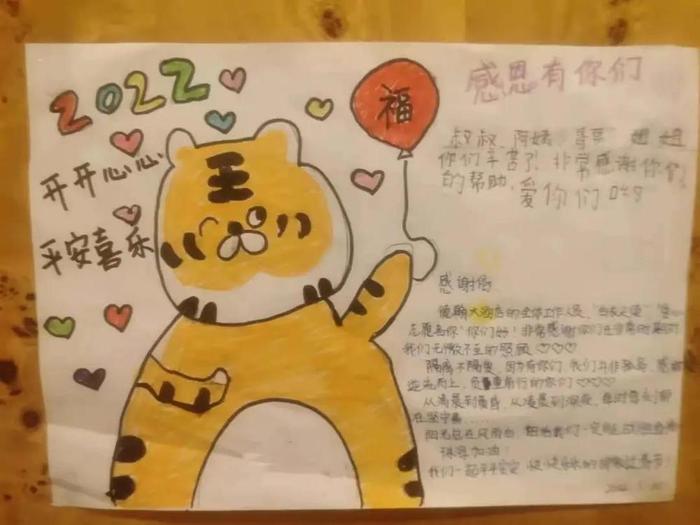 2022
开开心心
平安喜乐
王
福
感恩有你们
叔叔、阿姨、哥哥、姐姐
你们辛苦了！非常感谢你们
的帮助，爱你们
感谢信
大酒店的全体工作人员，"白衣天使"
志愿者们：你们好！非常感谢你们在
我们无微不至的照顾♡♡♡
隔离不隔爱，因为有你们，我们并非孤岛，感
逆光而上，负重前行的你们♡♡♡
从清晨到黄昏，从凌晨到深夜，
在坚守着......
阳光总在风雨后，相信我们一定能
珠海加油！
我们一起平平安安、快快乐乐的过春节！